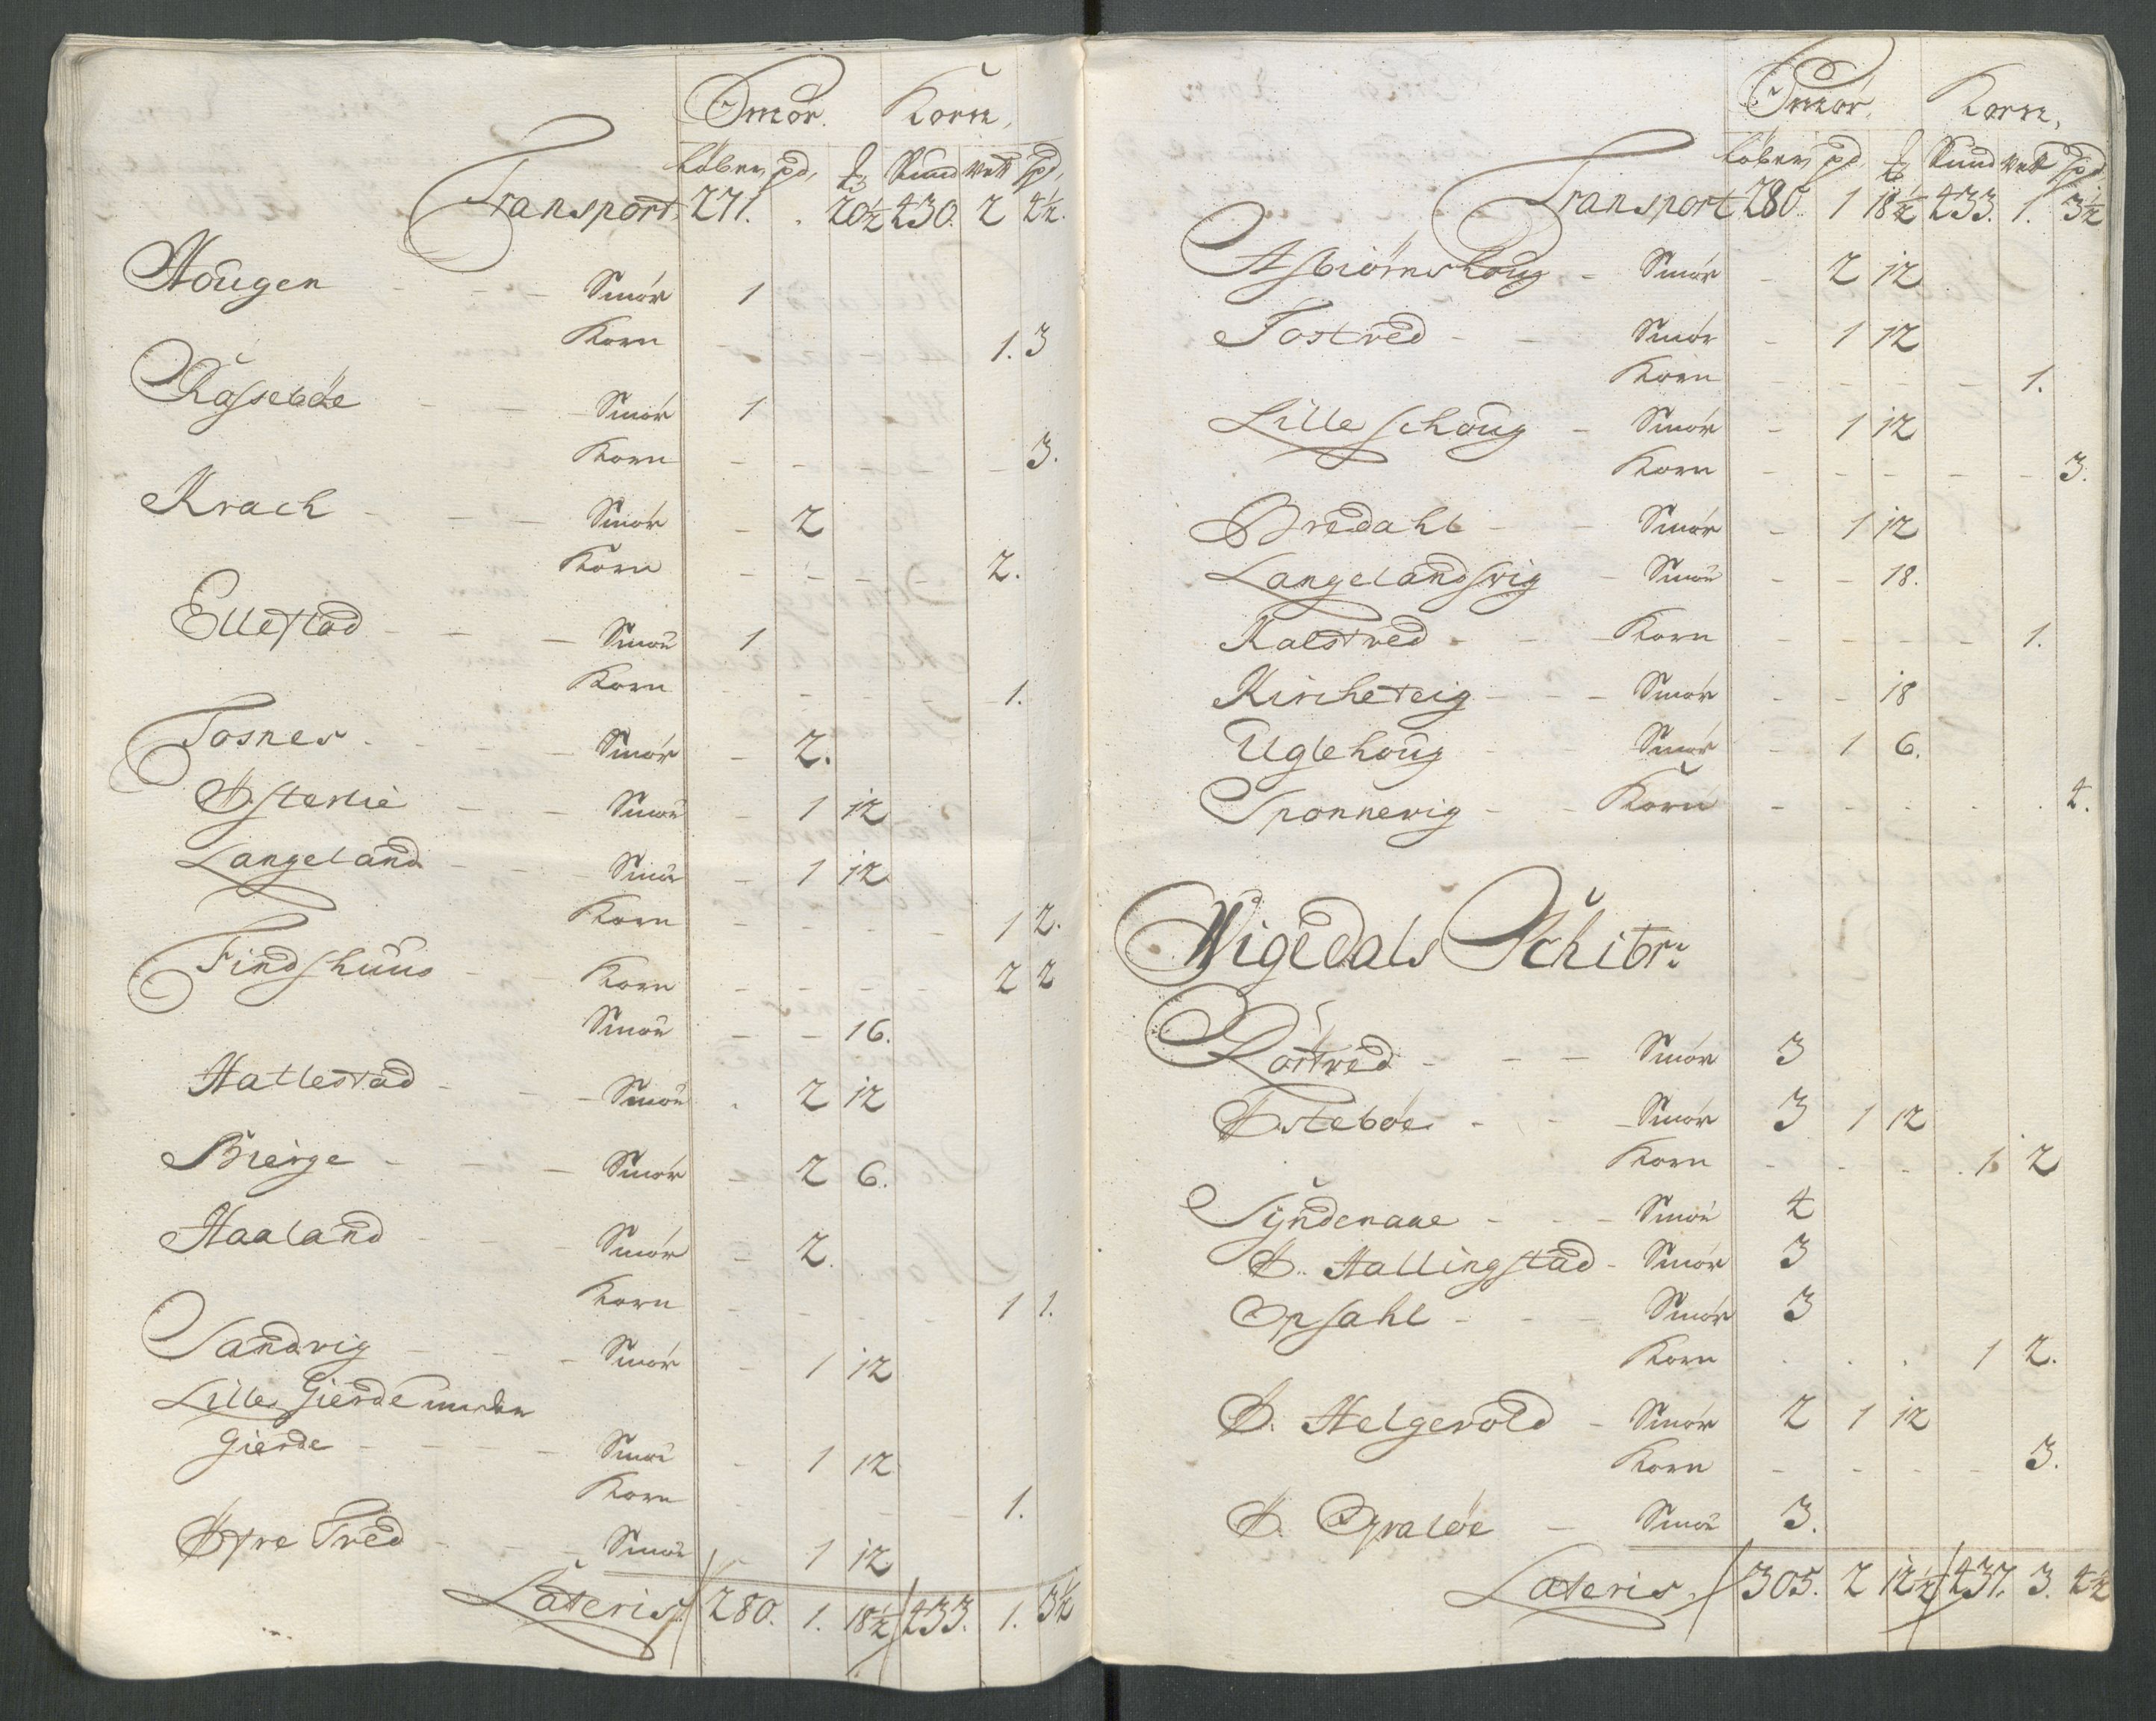 Smör. Korn.
Löber pd. ℔ Pund Vett Spd.
Transport. 271. . 20½ 430. 2 4½.
Hougen - - - Smör 1
Korn - - - - 1. 3
Røssebøe - - - Smör 1
Korn - - - - - 3.
Krach - - - Smör - 2
Korn - - - - 2.
Ellestad - - - Smör 1
Korn - - - - - 1.
Fosnes - - - Smör - 2.
Østerlie - - Smör - 1 12
Langeland - - - Smör - 1 12
Korn - - - - - 1 2.
Findshuus - - Korn - - - - - 2 2
Smör - - 16.
Hallestad - - - Smör . 2 12
Bierge - - - Smör - 2 6.
Haaland - - - Smör - 2.
Korn - - - - 1 1.
Sandvig - - - Smör - 1 12
Lille Gierde unden
Gierde - - - - Smör - 1 12
Korn - - - 1.
Øfre Tved - - - Smör - 1 12
Lateris 280. 1. 18½ 433. 1. 3½
Smör. Korn.
Löber pd. ℔ Pund Vett Spd.
Transport 280. 1 18½ 433. 1. 3½
Asbiörnshoug - Smör - 2 12
Tostved - - Smör - 1 12
Korn - - - - - 1.
Lille Schoug - Smör - 1 12
Korn - - - - - - 3.
Bredahl - - Smör - 1 12
Langelandsvig - Smör - - 18.
Kalstved - - Korn - - - - - 1.
Kircheteig - - - Smör - - 18
Uglehoug - - Smör - 1 6.
Sponnevig - - Korn - - - - - . 4.
Wigedals Schibr:
Röstved - - - Smör 3
Østebøe - - - Smör 3 1 12
Korn - - - . 1 2
Syndenaae - - - Smör 4
Ø. Hallingstad - Smör 3
Opsahl - - - Smör 3
Korn . . . 1 2.
Ø. Helgevold - Smör 2 1 12
Korn - - - - 3.
Ø. Opsaløe - Smör 3.
Lateris. 305. 2 12½ 437. 3. 4½